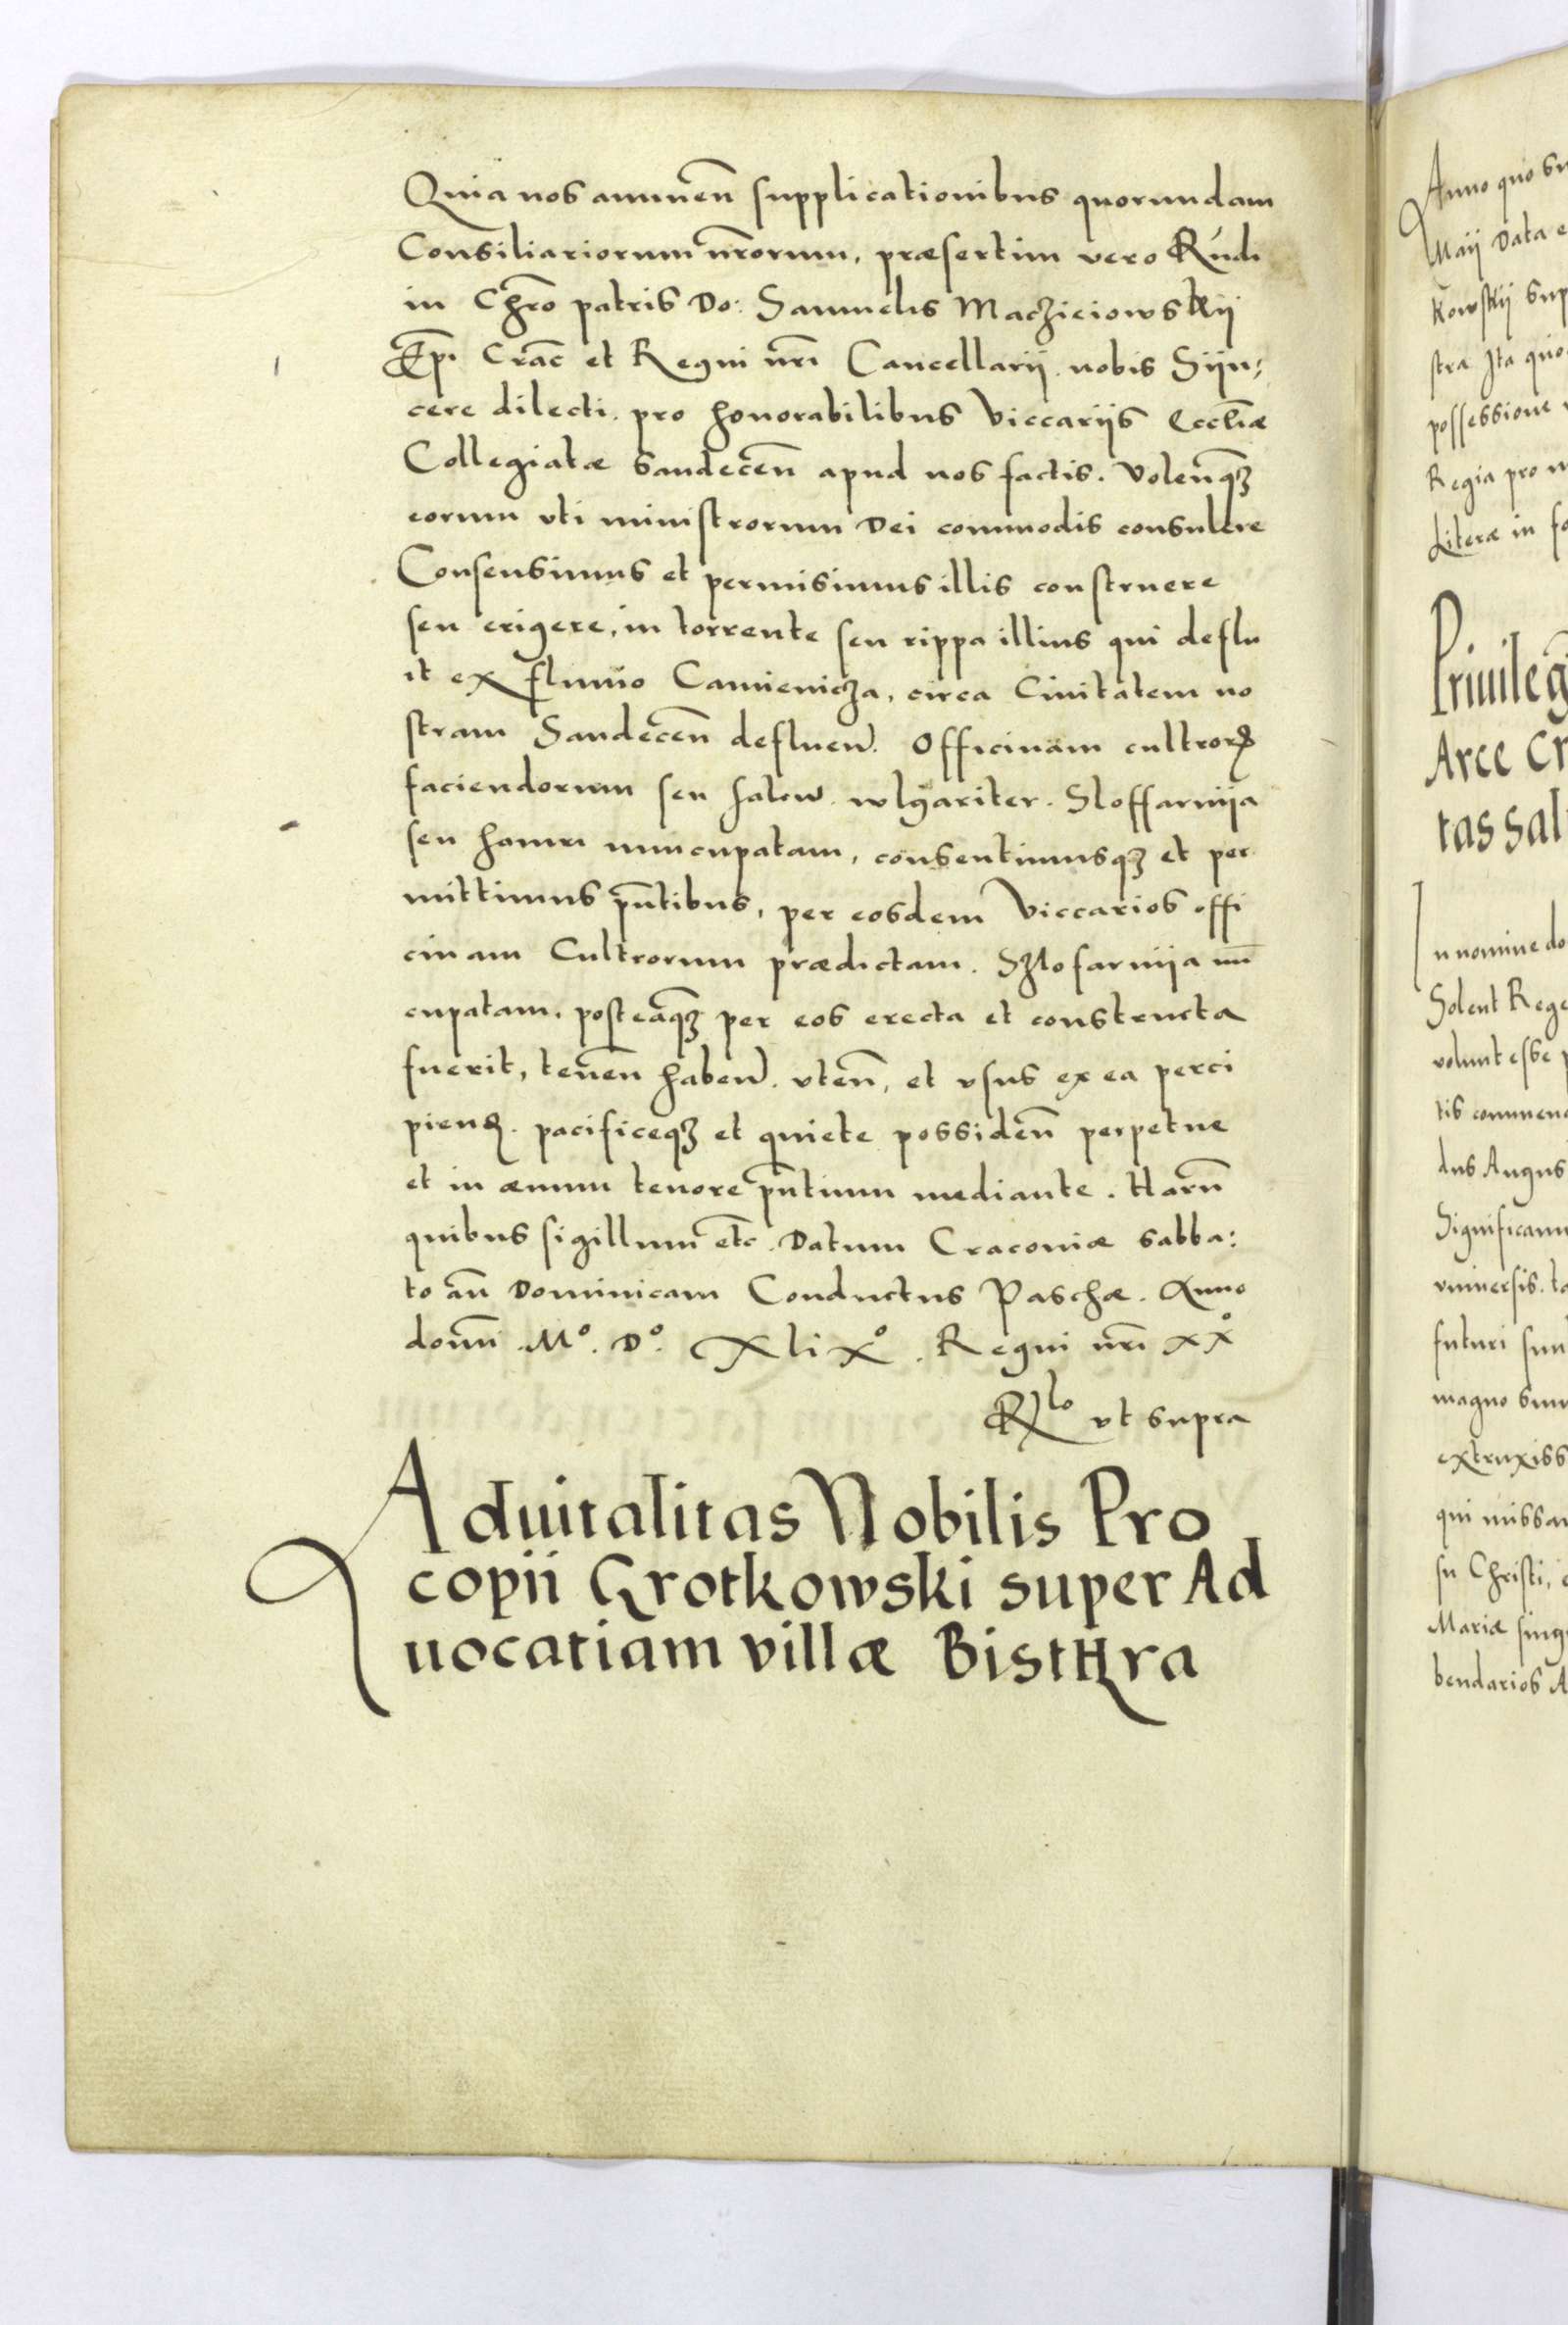 Quia nos annuen̄ supplicationibus quorundam
Consiliariorum nr̄orum, præsertim vero Rńdi
in Chr̄o patris Do: Samuelis Macziciowskij
Ep̄i Crac̄ et Regni nr̄i Cancellarij nobis Sijn:
cere dilecti. pro honorabilibus Viccarijs Eccl̄iæ
Collegiatæ Sandecen̄ apud nos factis. Volen̄qꝫ
eorum vti ministrorum Dei commodis consulere
Consensimus et permisimus illis construere
seu erigere, in torrente seu rippa illius qui deflu
it ex fluuio Camienicza, circa Ciuitatem no
stram Sandecen̄ defluen̄. Officinam cultroꝝ
faciendorum seu falcū. wlgariter. Sloffarnija
seu hamri nuncupatam, consentimusqꝫ et per
mittimus pn̄tibus, per eosdem Viccarios offi
cinam Cultrorum prædictam. Szlofarnija nū
cupatam. posteaqꝫ per eos erecta et constructa
fuerit, tenen̄ haben̄. vten̄, et vsus ex ea perci
pien̄. pacificeqꝫ et quiete possiden̄ perpetue
et in æuum tenore pn̄tium mediante. Harū
quibus sigillum etc̄. Datum Cracouiæ sabba:
to an̄ Dominicam Conductus Paschæ. Anno
domī .Mº. Dº. XliXº. Regni nr̄i xxº
Rlo vt supra
Aduitalitas Nobilis Pro
copii Grotkowski super Ad
uocatiam villæ Bistrra
Anno quo su
Maij Data e
kowskij sup
stra Ita quo
possessione
Regia pro
Literæ in fo
Priuileg̅
Arce Cr
tas sal
In nomine do
Solent Rege
volunt esse p
tis commend
dus Augus
Significam
vniuersis. ta
futuri sun
magno sum
extruxiss
qui missar
su Christi,
Mariæ sing
bendarios A